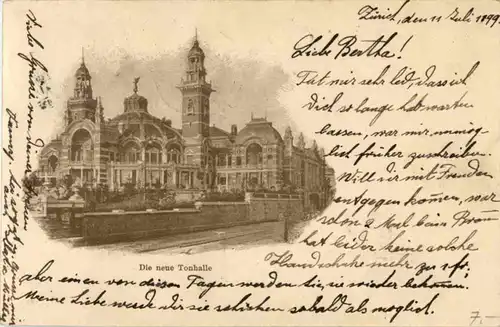 Zürich, den 11 Juli 1899.
Liebe Bertha!
Tut mir sehr leid, dass ich
Dich so lange hab warten
lassen, war mir unmög-
lich früher zu schreiben.
Will dir mit Freuden
entgegen kommen, war
schon 2 Mal beim Brann
hat leider keine solche
Handschuhe mehr
Die neue Tonhalle
aber einen von diesen Tagen werden Sie, sie wieder bekommen.
Meine Liebe werde dir sie schicken sobald als möglich.
Viele Grüsse von
7.-